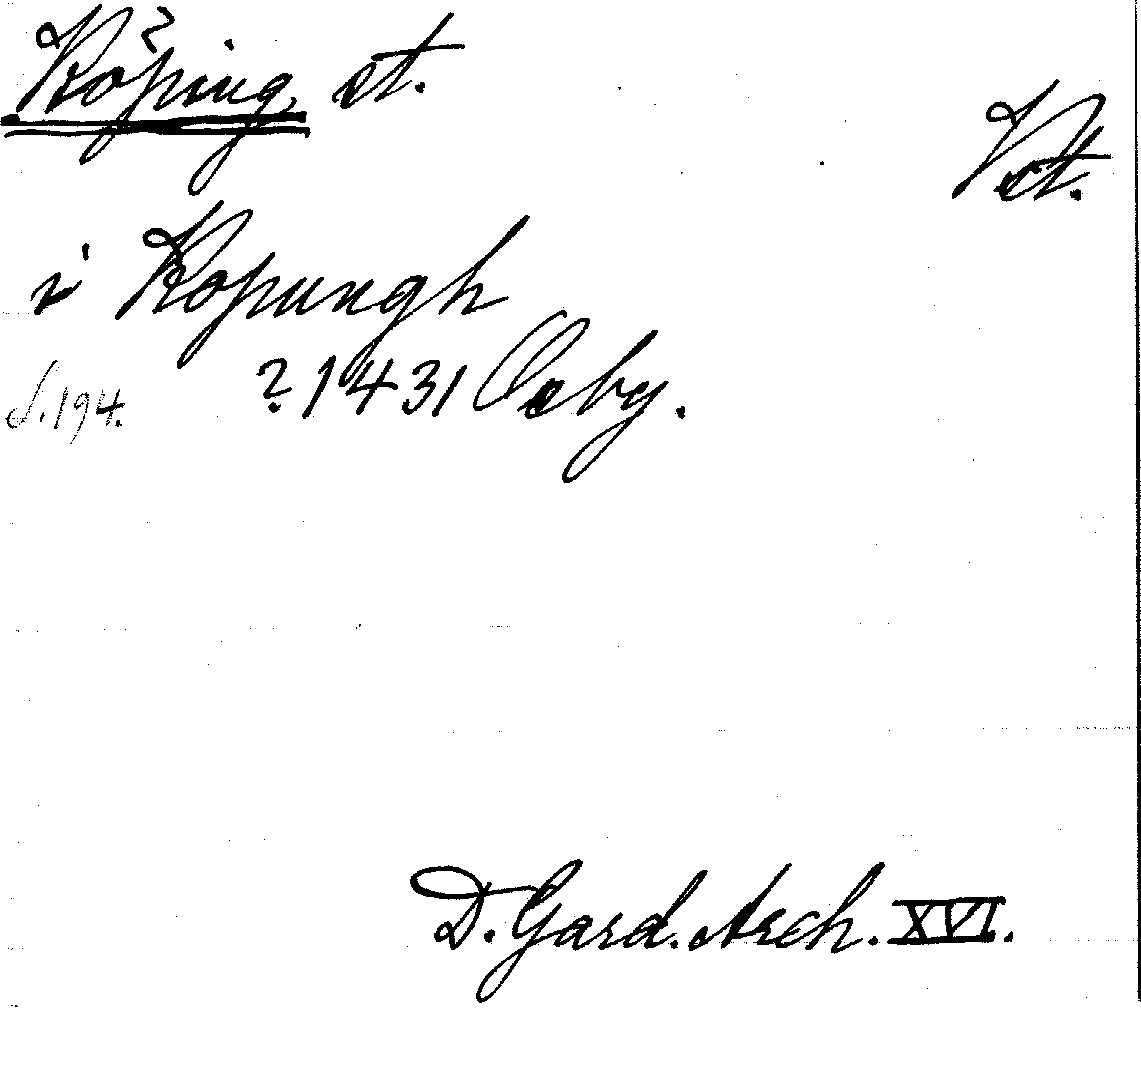 Köping, st.
Vst.
i Kopungh
s. 194. ? 1431 Oxby.
D. Gard. Arch. XVI.